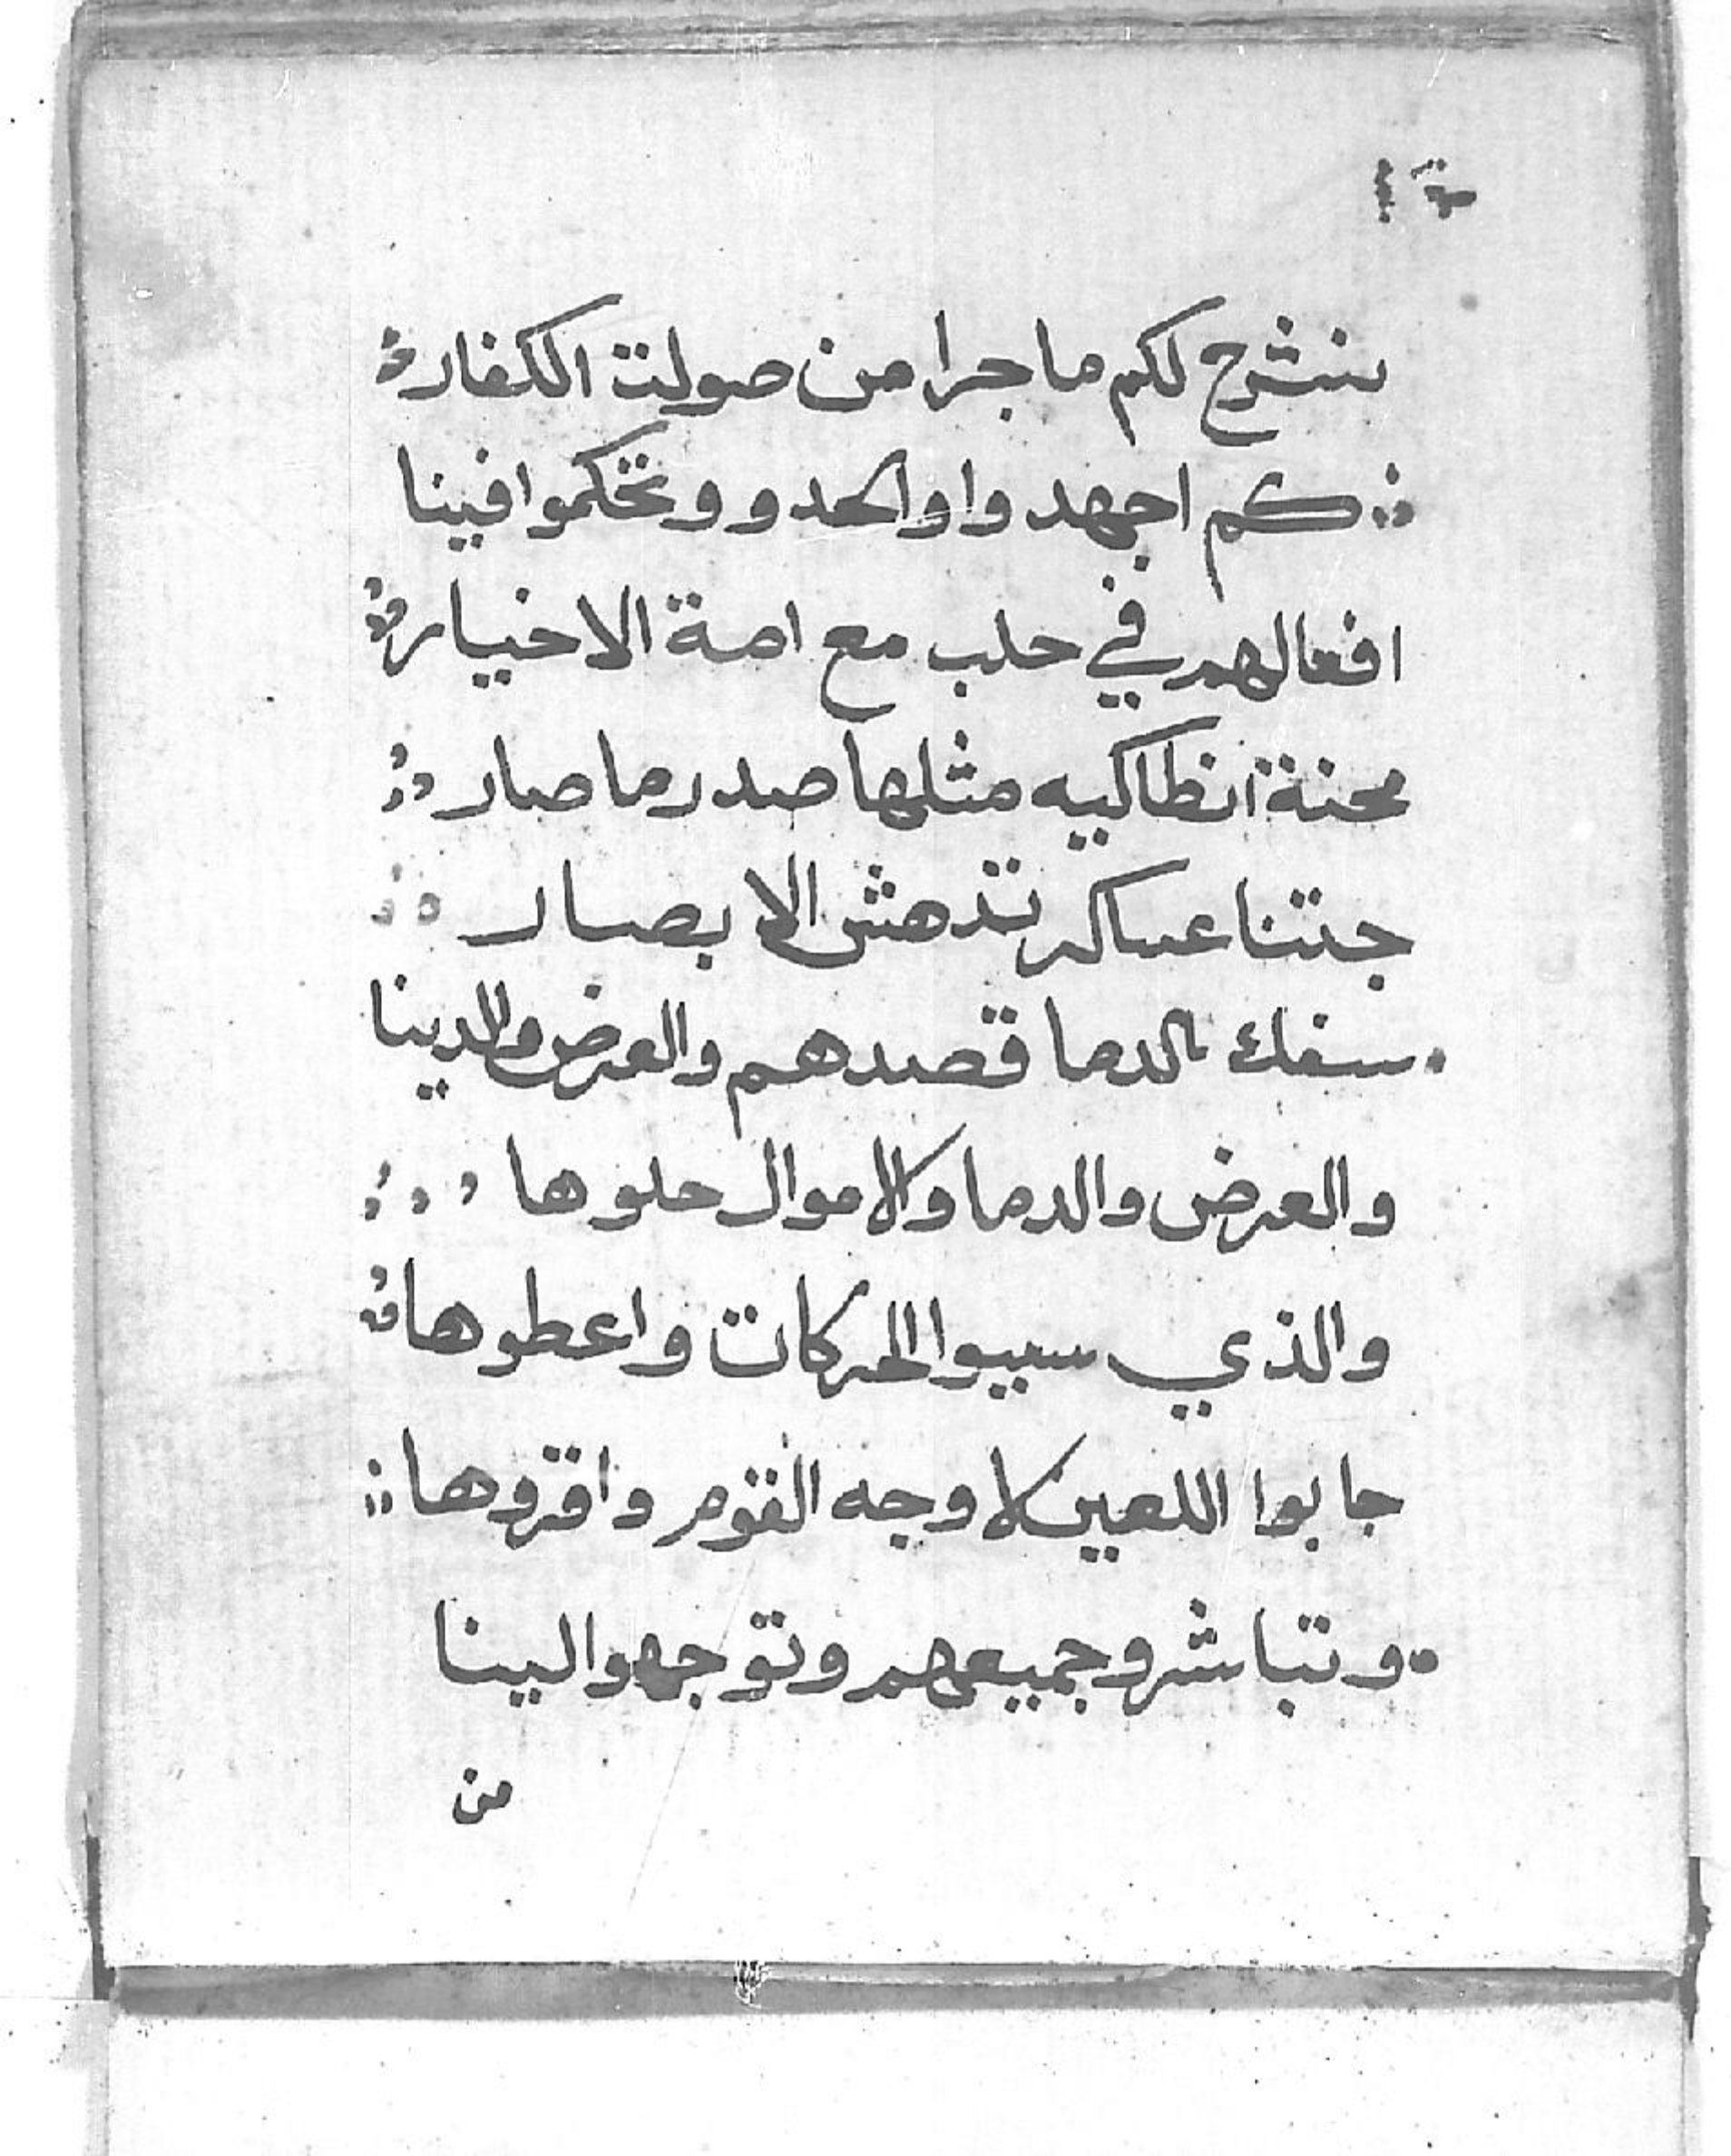 ننشرح لكم ما جرا من صولت الكفار
كم اجهدوا والحدو وتحكموا فينا
افعالهم في حلب مع امة الاخيار
محنة انطاكيه مثلها صدر ما صار
جتنا عساكر تدهش الابصار
سفك الدما قصدهم والعرض والدينا
والعرض والدما والاموال حلوها
والذي سيبوا الحركات واعطوها
جابوا اللعين لا وجه القوم واقروها
وتباشرو جميعهم وتوجهوا الينا
من